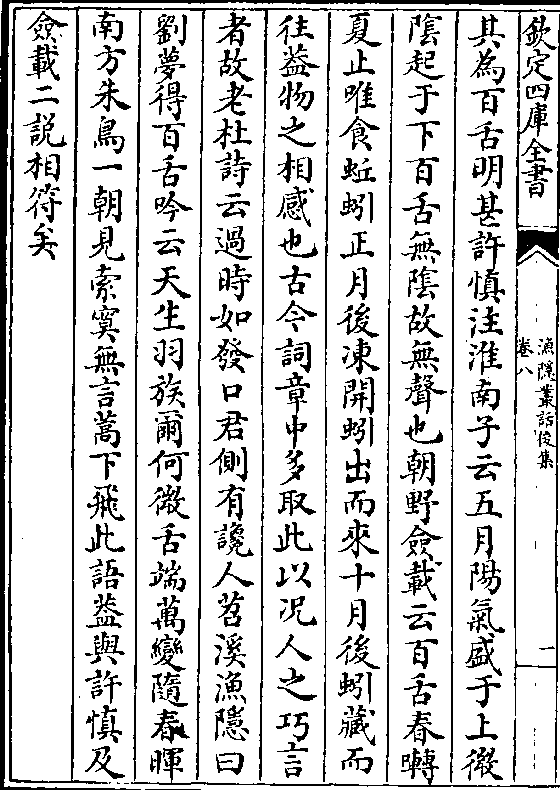 欽定四庫全書
漁隠叢話後集
卷八
一
其為百舌明甚許慎注淮南子云五月陽氣盛于上微
陰起于下百舌無陰故無聲也朝野僉載云百舌春囀
夏止唯食蚯蚓正月後凍開蚓出而來十月後蚓藏而
往葢物之相感也古今詞章中多取此以况人之巧言
者故老杜詩云過時如發口君側有讒人苕溪漁隠曰
劉夢得百舌吟云天生羽族爾何微舌端萬變隨春暉
南方朱鳥一朝見索寞無言蒿下飛此語葢與許慎及
僉載二説相符矣